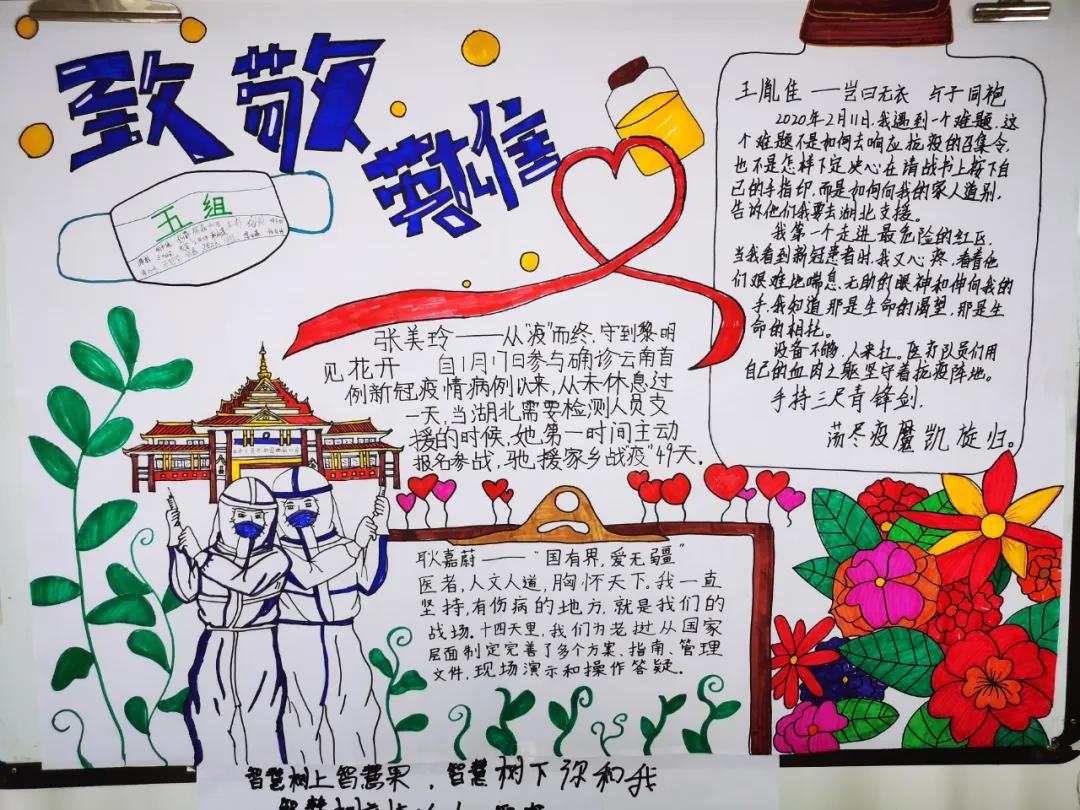 致敬
英雄
五组
王胤佳 ——岂曰无衣 与子同袍
2020年2月11日,我遇到一个难题.这
个难题不是如何去响应抗疫的召集令,
也不是怎样下定决心在请战书上按下自
己的手指印.而是如何向我的家人道别,
告诉他们我要去湖北支援。
我第一个走进最危险的红区.
当我看到新冠患者时,我又心疼.看着他
们艰难地喘息、无助的眼神和伸向我的
手,我知道那是生命的渴望,那是生
命的相托。
设备不够,人来扛。医疗队员们用
自己的血肉之躯坚守着抗疫阵地。
手持三尺青锋剑.
荡尽疫魔凯旋归。
张美玲——从“疫”而终,守到黎明
见花开 自1月17日参与确诊云南首
例新冠疫情病例以来,从未休息过
一天,当湖北需要检测人员支
援的时候,她第一时间主动
报名参战,驰援家乡战疫“49天。
耿嘉蔚——“国有界,爱无疆”
医者,人文人道,胸怀天下。我一直
坚持,有伤病的地方,就是我们的
战场。十四天里,我们为老挝从国家
层面制定完善了多个方案、指南、管理
文件,现场演示和操作答疑。
智慧树上智慧果,智慧树下你和我